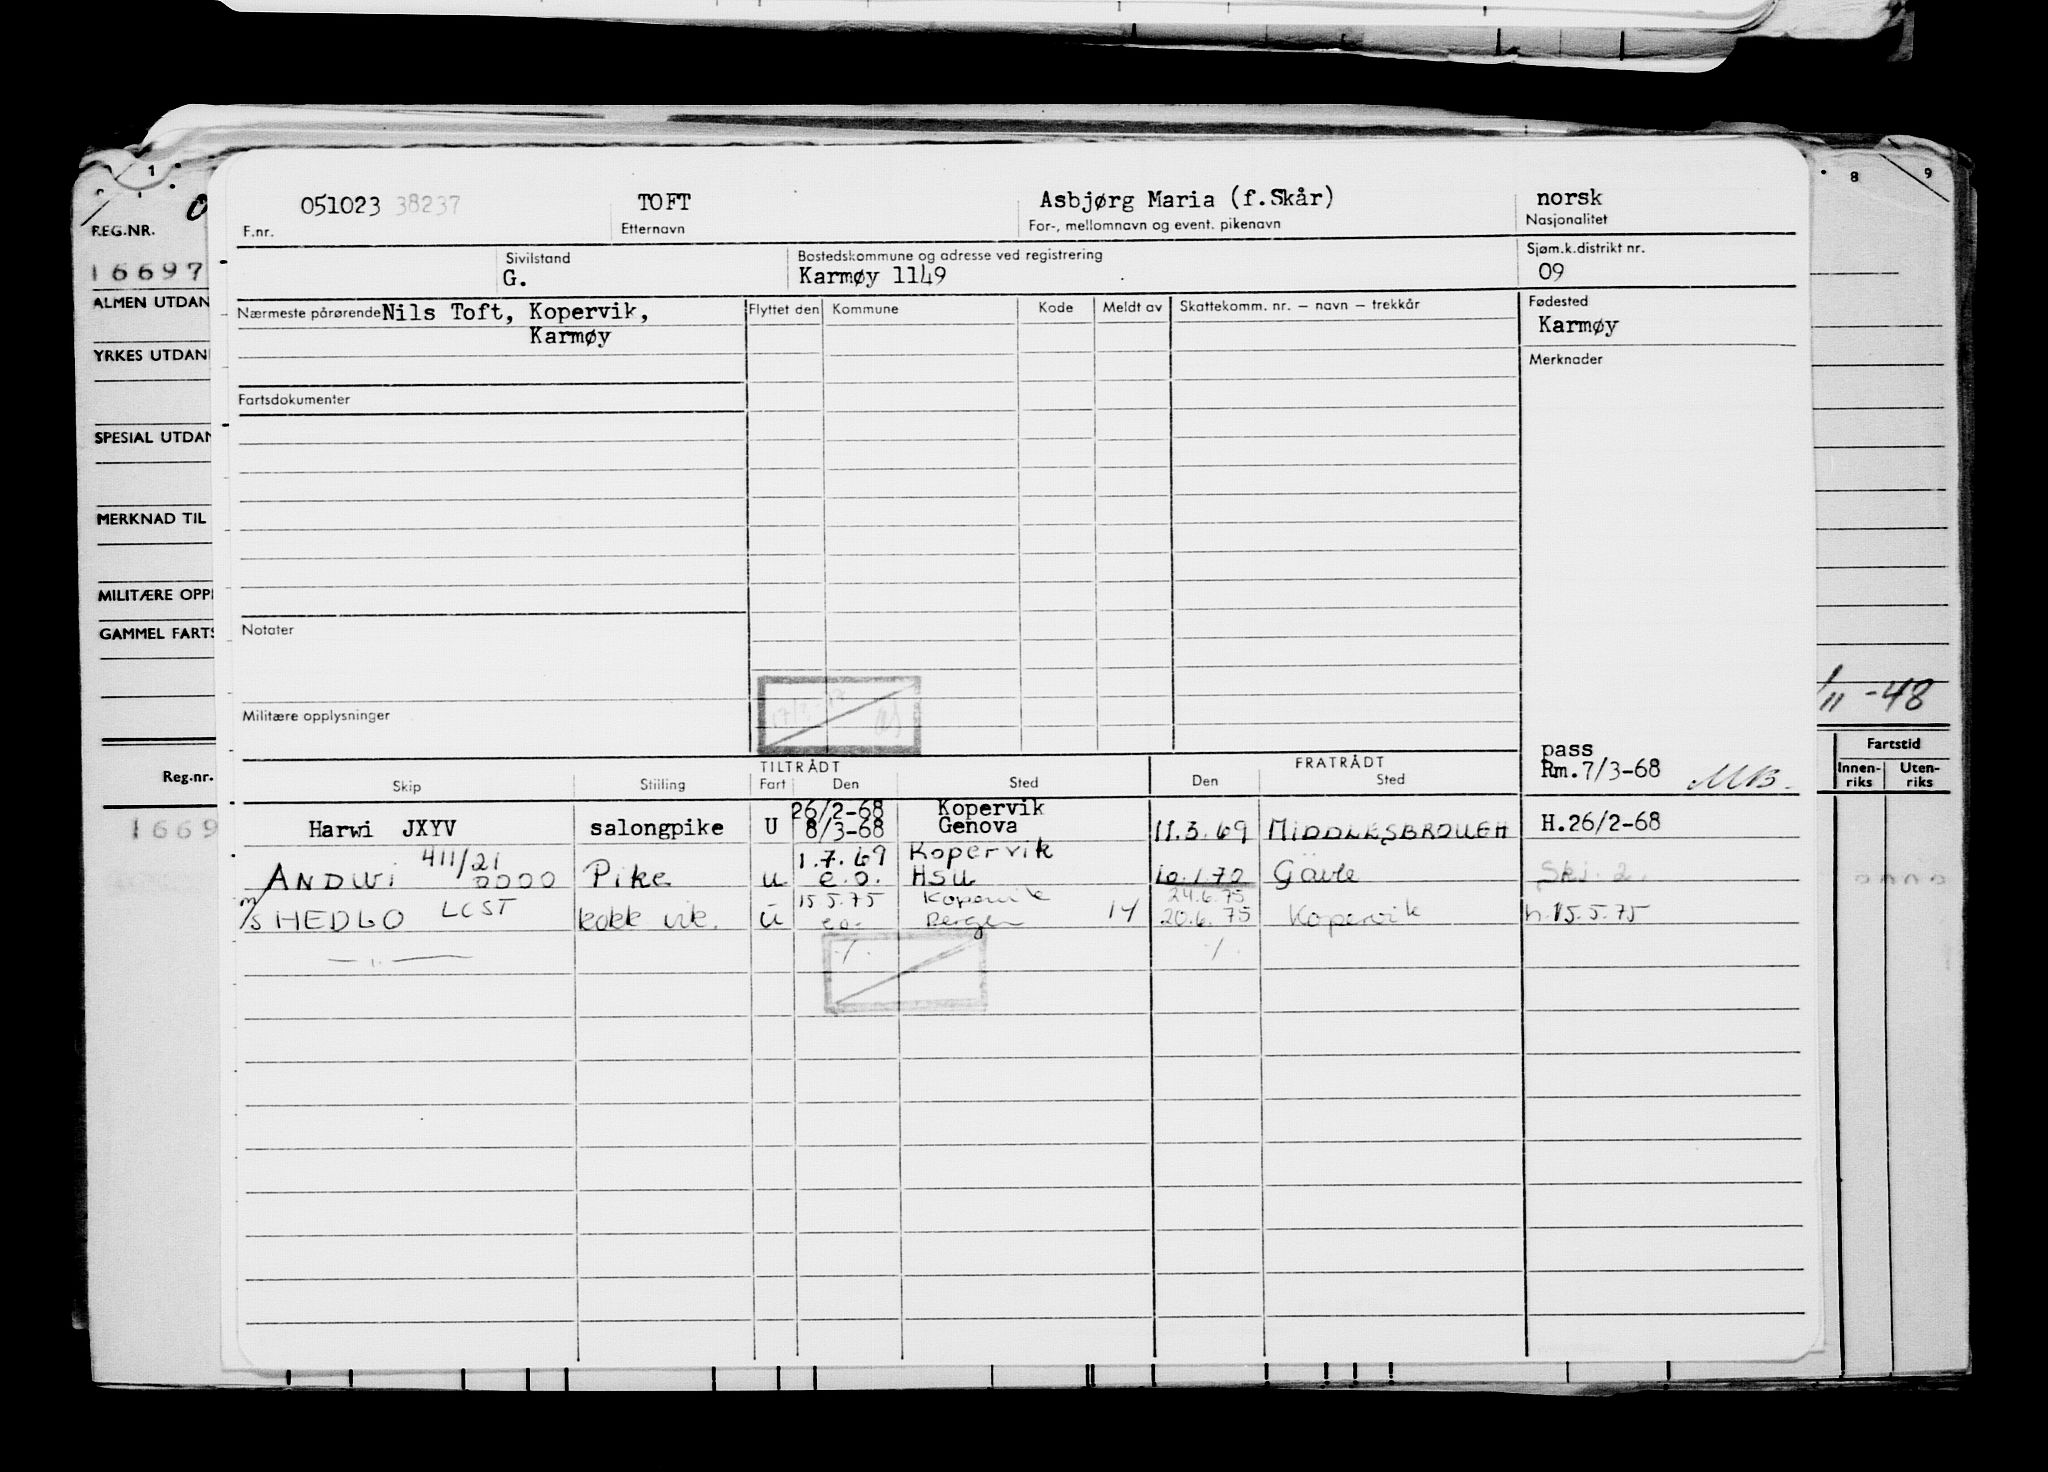 051023 38237 TOFT Asbjørg Maria (f.Skår) norsk
F.nr. Etternavn For-, mellomnavn og event. pikenavn Nasjonalitet
Sivilstand Bostedskommune og adresse ved registrering Sjøm.k.distrikt nr.
G. Karmøy 1149 09
Nærmeste pårørende Nils Toft, Kopervik, Flyttet den Kommune Kode Meldt av Skattekomm. nr. — navn — trekkår Fødested
Karmøy Karmøy
Merknader
Fartsdokumenter
Notater
Militære opplysninger
pass
Rm.7/3-68 MB.
TILTRÅDT FRATRÅDT
Skip Stiilling Fart Den Sted Den Sted
26/2-68 Kopervik
Harwi JXYV salongpike U 8/3-68 Genova 11.3.69 MIDDLESBROUGH H.26/2-68
411/21 1.7.69 Kopervik
ANDWI 0000 Pike u e.o. HSU 10.1.70 Gävle Ski. 2.
15.5.75 Kopervik 24.6.75
M/S HEDLO LCST kokk vik. u e.o. Bergen 14 20.6.75 Kopervik h.15.5.75
— " —
1 8 9
REG.NR.
16697
ALMEN UTDAN
YRKES UTDAN
SPESIAL UTDAN
MERKNAD TIL
MILITÆRE OPPL
GAMMEL FARTS
Reg.nr.
1669
/11 -48
Fartstid
Innen- Uten-
riks riks